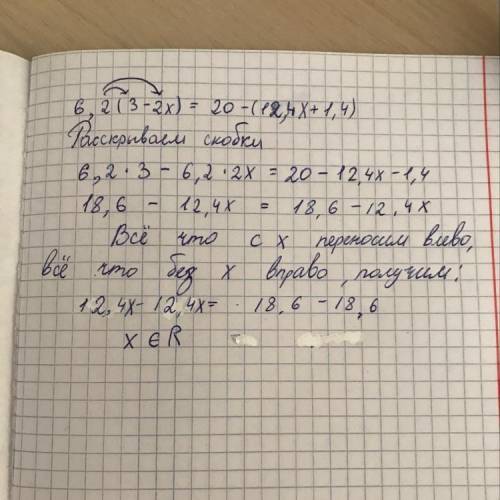 6,2(3-2x) = 20-(12,4x+1,4)
Расскрываем скобки
6,2·3 - 6,2·2x = 20-12,4x-1,4
18,6 - 12,4x = 18,6-12,4x
Всё что с x переносим влево,
всё что без x вправо, получим:
12,4x-12,4x= 18,6-18,6
x ∈ R